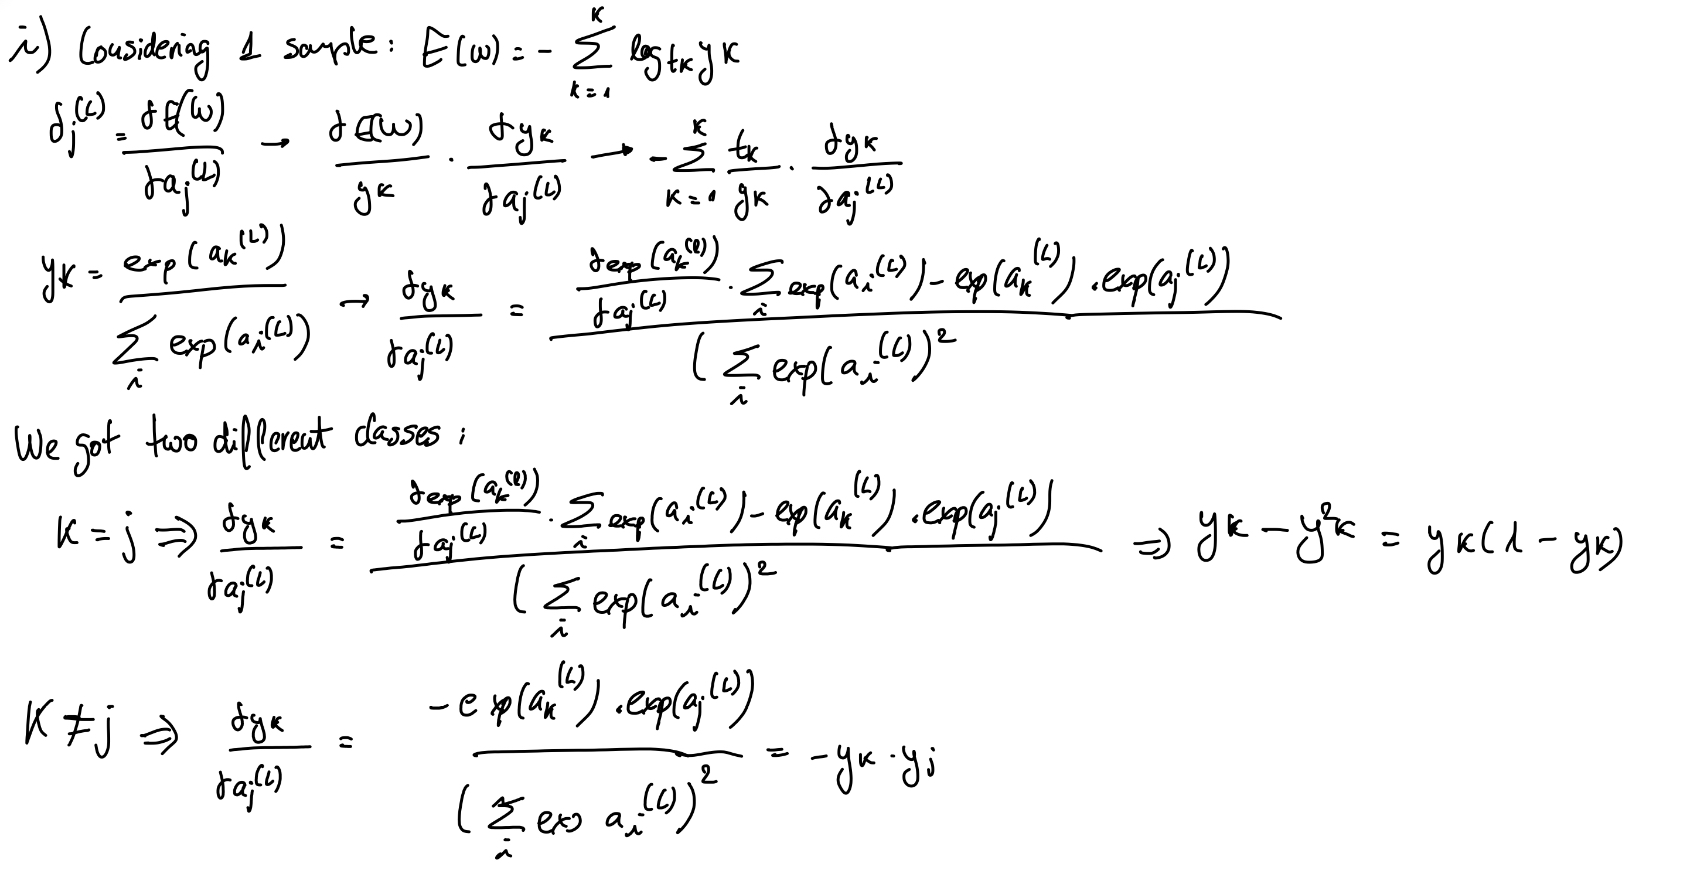 i) Considering 1 sample: E(w) = - ∑_{k=1}^{K} log t_k y_k
δ_j^(L) = ∂E(w) / ∂a_j^(L) → ∂E(w) / y_k · ∂y_k / ∂a_j^(L) → - ∑_{k=1}^{K} t_k / y_k · ∂y_k / ∂a_j^(L)
y_k = exp(a_k^(L)) / ∑_i exp(a_i^(L)) → ∂y_k / ∂a_j^(L) = (∂exp(a_k^(l)) / ∂a_j^(L) · ∑_i exp(a_i^(L)) - exp(a_k^(L)) · exp(a_j^(L))) / (∑_i exp(a_i^(L))^2
We got two different classes:
K = j ⇒ ∂y_k / ∂a_j^(L) = (∂exp(a_k^(l)) / ∂a_j^(L) · ∑_i exp(a_i^(L)) - exp(a_k^(L)) · exp(a_j^(L))) / (∑_i exp(a_i^(L))^2 ⇒ y_k - y^2_k = y_k(1 - y_k)
K ≠ j ⇒ ∂y_k / ∂a_j^(L) = -exp(a_k^(L)) · exp(a_j^(L)) / (∑_i exp a_i^(L))^2 = -y_k · y_j